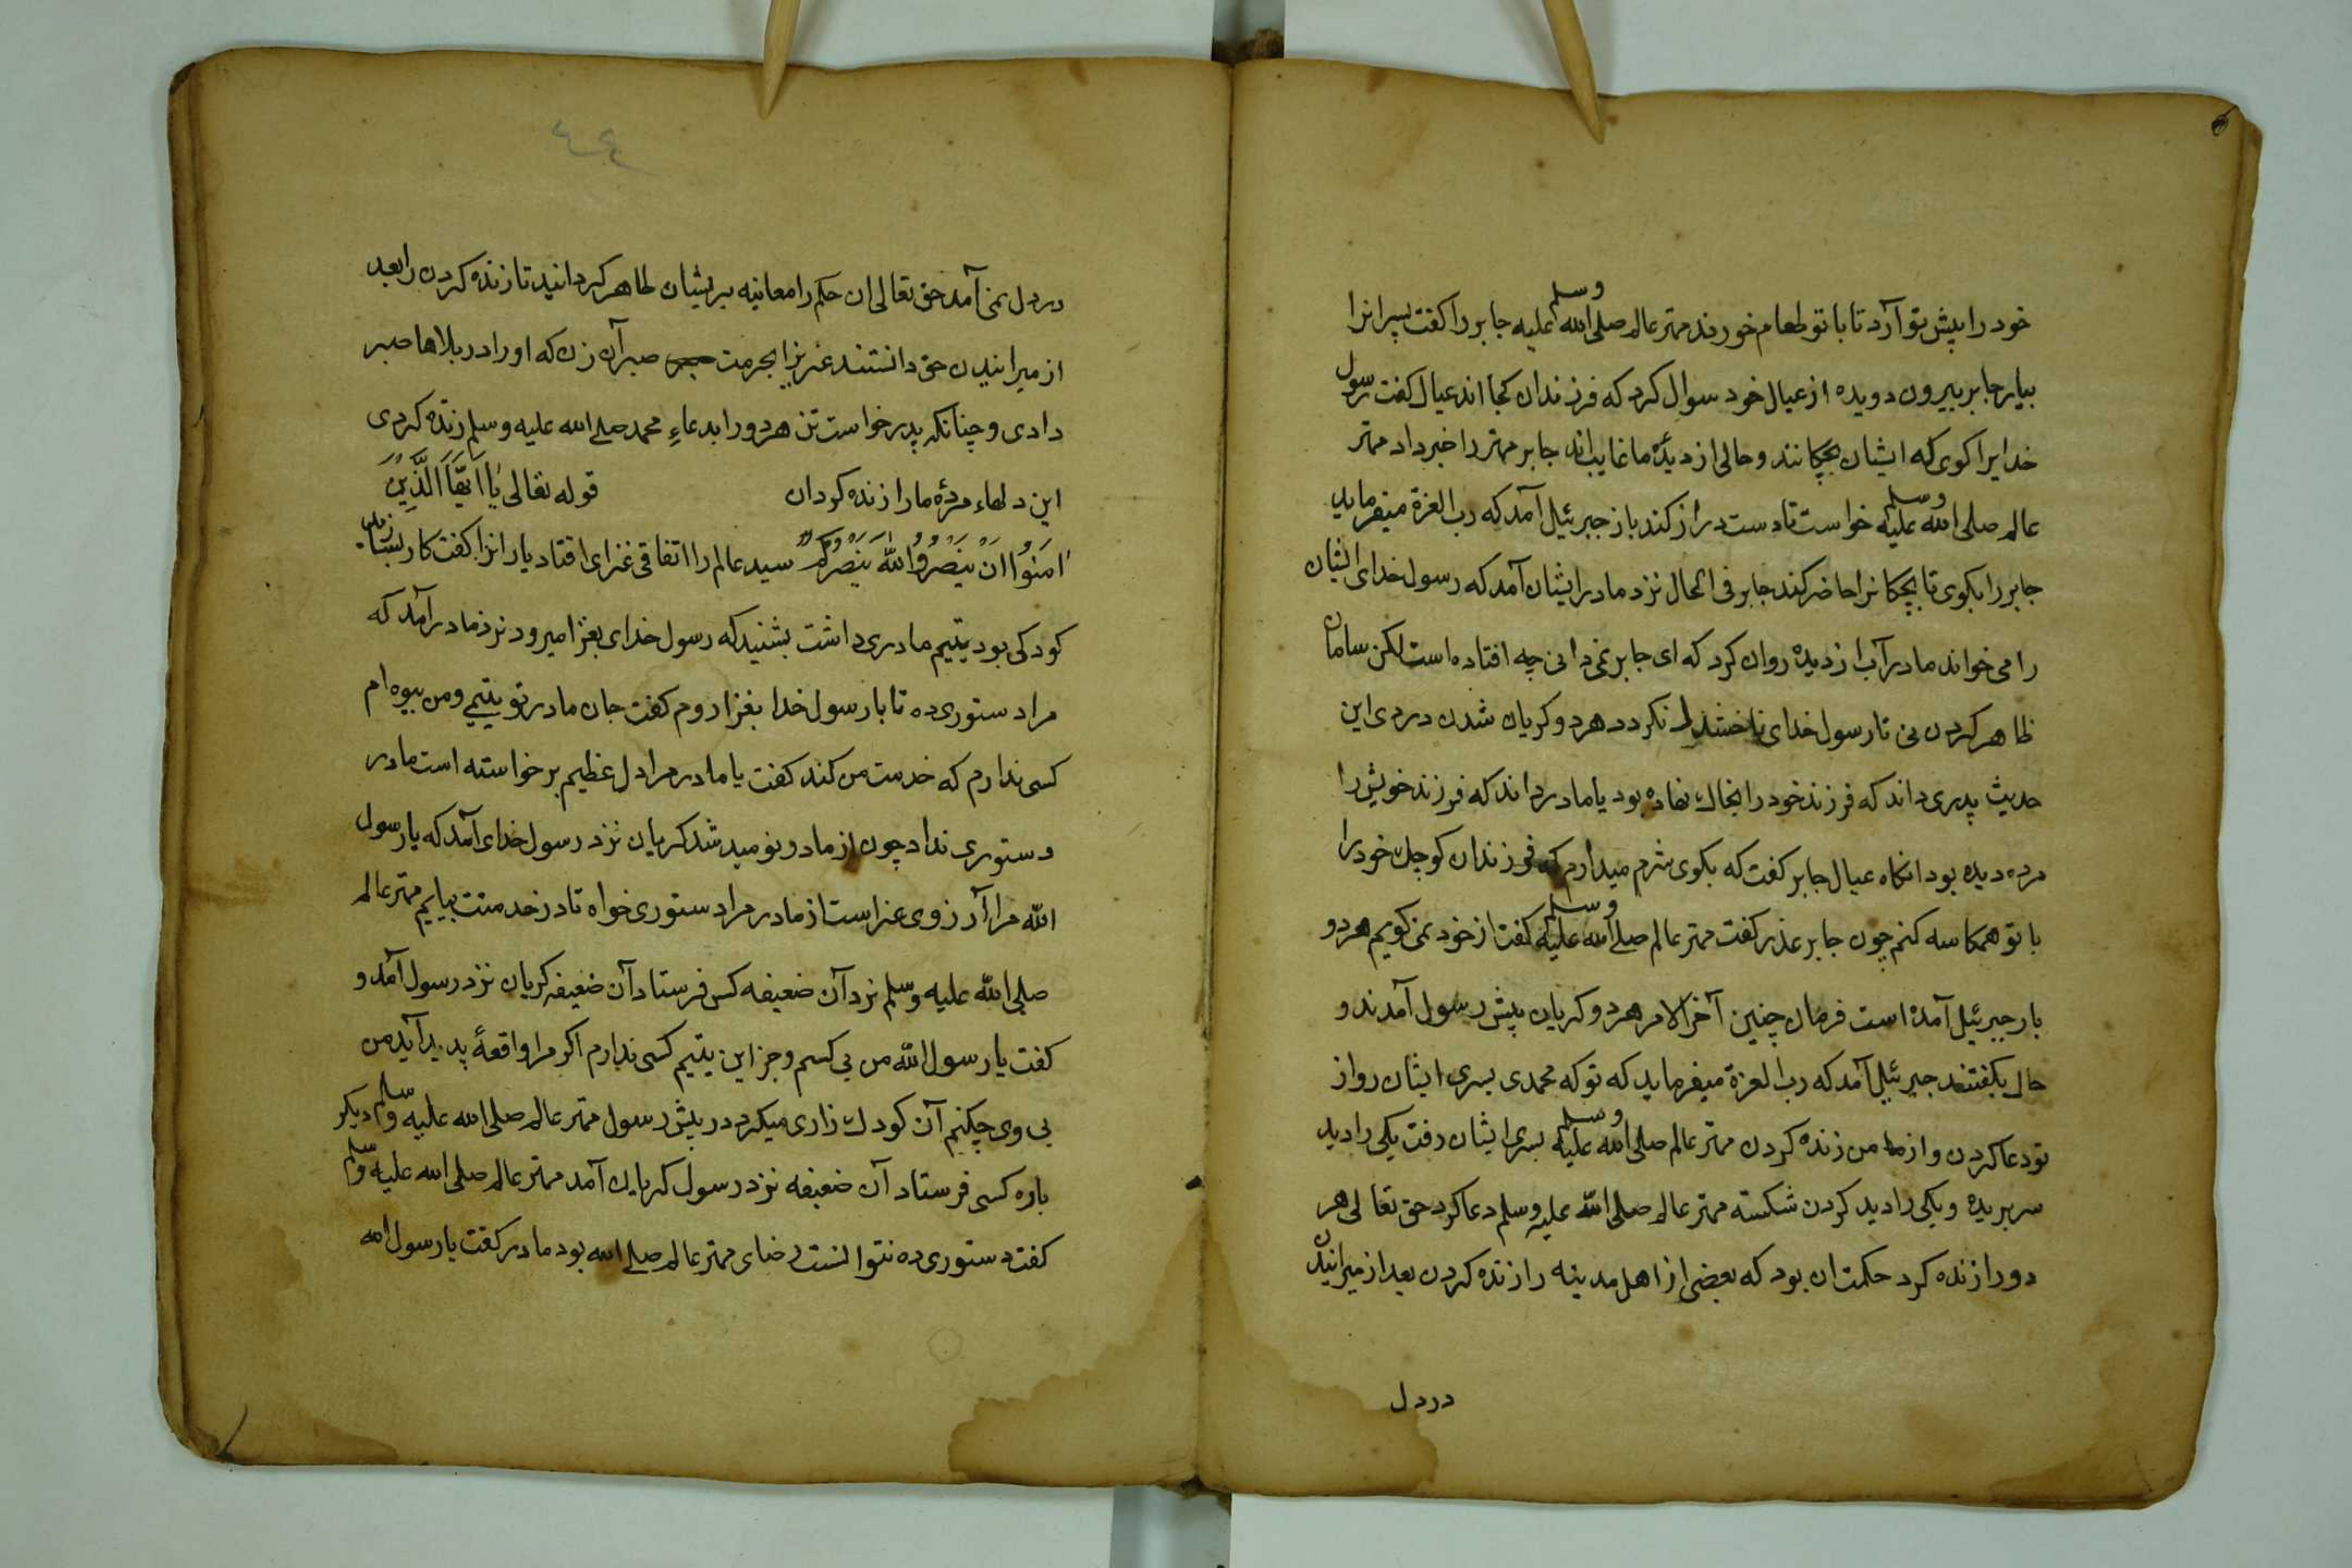 خود را پیش تو آرد تا با تو طعام خورند مهتر عالم صلی الله علیه وسلم جابر را کفت پسرانرا
بیار جابر بیرون دویده از عیال خود سوال کرد که فرزندان کجا اند عیال کفت رسول
خدایرا کوی که ایشان بچکانند و حالی از دیدهٔ ما غایب اند جابر مهتر را خبر داد مهتر
عالم صلی الله علیه وسلم خواست تا دست دراز کند باز جبرئیل آمد که رب العزة میفرماید
جابر را بکوی تا بچکانرا حاضر کند جابر فی الحال نزد مادر ایشان آمد که رسول خدای ایشان
را می خواند مادر آب از دیده روان کرد که ای جابر نمی دانی چه افتاده است لکن سامان
ظاهر کردن نی تا رسول خدای نکردد هر دو کریان شدن درد این
حدیث پدری داند که فرزند خود را بخاک نهاده بود یا مادر داند که فرزند خویش را
مرده دیده بود انکاه عیال جابر کفت که بکوی شرم میدارم که فرزندان کوچک خود را
با تو همکاسه کنم چون جابر عذر کفت مهتر عالم صلی الله علیه وسلم کفت از خود نمی کویم هر دو
بار جبرئیل آمده است فرمان چنین آخر الامر هر دو کریان پیش رسول آمدند و
حال بکفتند جبرئیل آمد که رب العزة میفرماید که تو که محمدی بسری ایشان رو از
تو دعا کردن و از ما من زنده کردن مهتر عالم صلی الله علیه وسلم بسر ایشان رفت یکی را دید
سر بریده و یکی را دید کردن شکسته مهتر عالم صلی الله علیه وسلم دعا کرد حق تعالی هر
دو را زنده کرد حکمت ان بود که بعضی از اهل مدینه را زنده کردن بعد از میرانیدن
در دل
در دل نمی آمد حق تعالی ان حکم را معاینه بریشان ظاهر کردانید تا زنده کردن را بعد
از میرانیدن حق دانستند عزیزا بحرمت صبر آن زن که او را در بلاها صبر
دادی و چنانکه پدر خواست تن هر دو را بدعاءِ محمد صلی الله علیه وسلم زنده کردی
این دلهاء مردهٔ ما را زنده کردان قوله تعالی یَا اَیُّهَا الَّذِینَ
اٰمَنُوا اِنْ یَنْصُرُوا اللّٰهَ یَنْصُرْکُمْ سید عالم را اتفاقی غزای افتاد یارانرا کفت کار بسازید
کودکی بود یتیم مادری داشت بشنید که رسول خدای بغزا میرود نزد مادر آمد که
مرا دستوری ده تا با رسول خدا بغزا روم کفت جان مادر تو یتیمی و من بیوه ام
کسی ندارم که خدمت من کند کفت یا مادر مرا دل عظیم برخواسته است مادر
دستوری نداد چون از مادر نومید شد کریان نزد رسول خدای آمد که یا رسول
الله مرا آرزوی غزاست از مادر مرا دستوری خواه تا در خدمتت بیایم مهتر عالم
صلی الله علیه وسلم نزد آن ضعیفه کس فرستاد آن ضعیفه کریان نزد رسول آمد و
کفت یا رسول الله من بی کسم و جز این یتیم کسی ندارم اکر مرا واقعهٔ پدید آید من
بی وی چکنم آن کودک زاری میکرد در پیش رسول مهتر عالم صلی الله علیه وسلم دیکر
باره کسی فرستاد آن ضعیفه نزد رسول کریان آمد مهتر عالم صلی الله علیه وسلم
کفت دستوری ده نتوانست رضای مهتر عالم صلی الله بود مادر کفت یا رسول الله